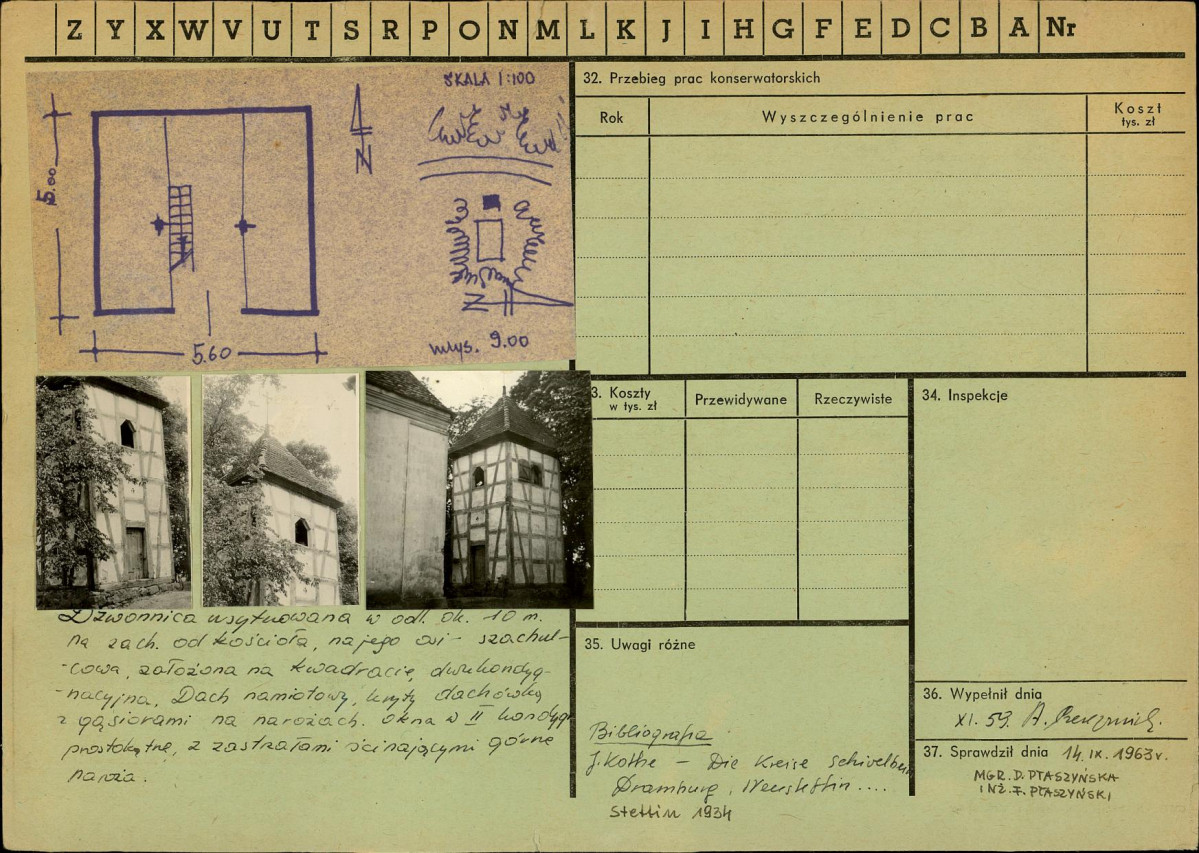 Z Y X W V U T S R P O N M L K J I H G F E D C B A Nr
SKALA 1:100
5.00
N
N
5.60
wys. 9.00
32. Przebieg prac konserwatorskich
Rok
Wyszczególnienie prac
Koszt
tys. zł
3. Koszty
w tys. zł
Przewidywane
Rzeczywiste
34. Inspekcje
Dzwonnica usytuowana w odl. ok. 10 m.
na zach. od kościoła, na jego osi - szachul-
-cowa, założona na kwadracie, dwukondyg-
-nacyjna. Dach namiotowy, kryty dachówką
z gąsiorami na narożach. okna w II kondyg
prostokątne, z zastrzałami ścinającymi górne
naroża.
35. Uwagi różne
Bibliografia
J. Kothe - Die Kreise Schivelbein
Dramburg, Neustettin ....
Stettin 1934
36. Wypełnił dnia
XI. 59. A.
37. Sprawdził dnia 14. IX. 1963 r.
MGR. D. PTASZYŃSKA
INŻ. F. PTASZYŃSKI